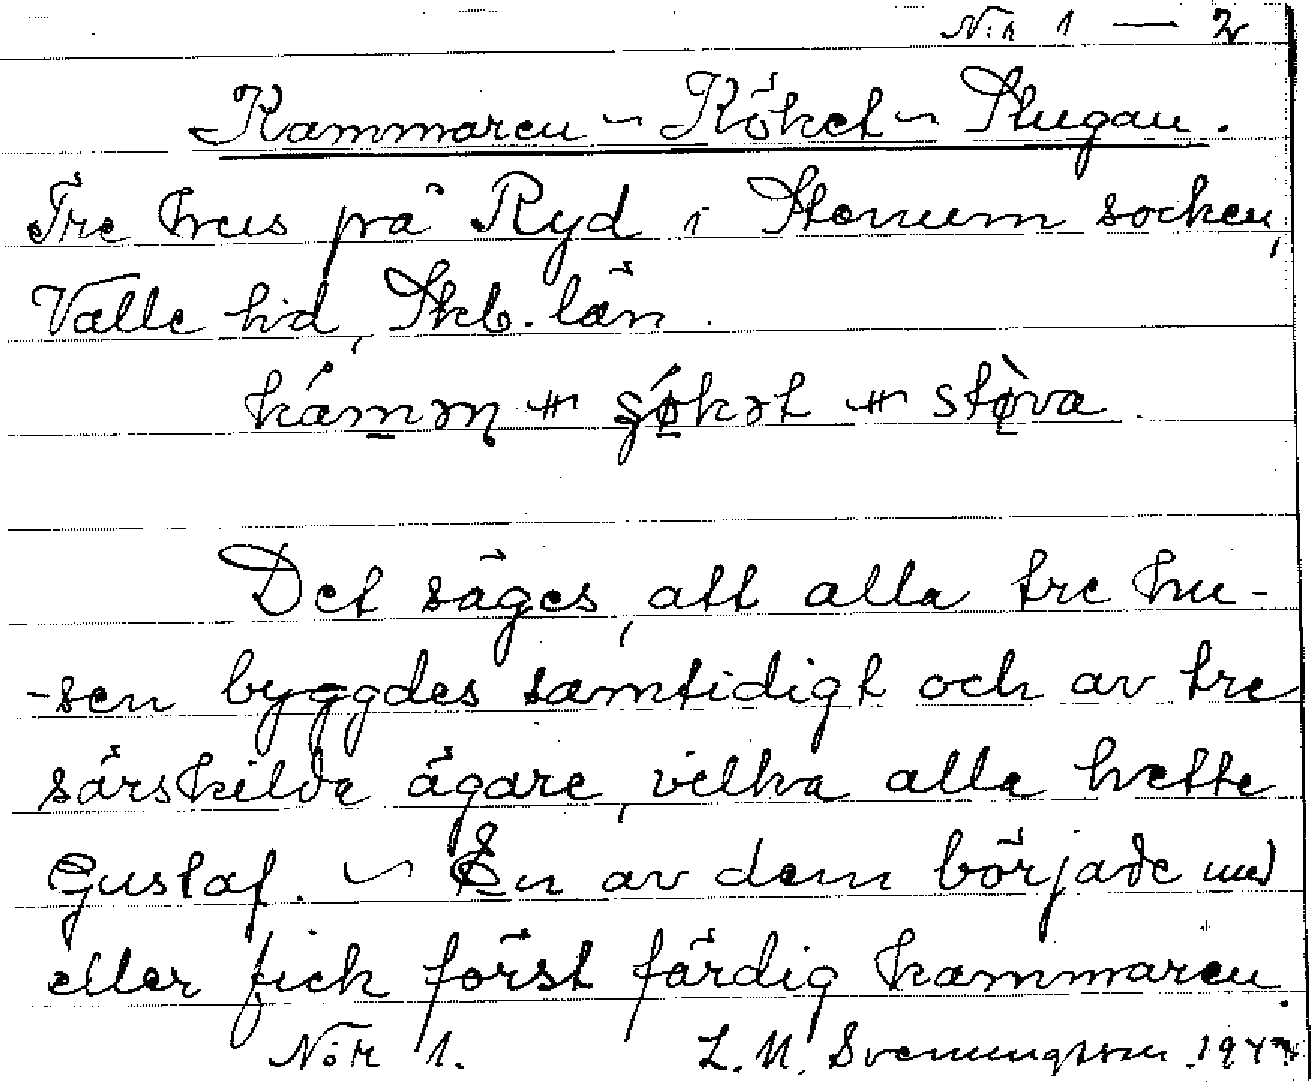 N:r 1 — 2
Kammaren – Köket – Stugan.
Tre hus på Ryd i Stenum socken,
Valle hd, Skb. län.
Det säges, att alla tre hu-
-sen byggdes samtidigt och av tre
särskilda ägare, vilka alla hette
Gustaf. – En av dem började med
eller fick först färdig kammaren.
N:r 1. L. M. Svenungsson